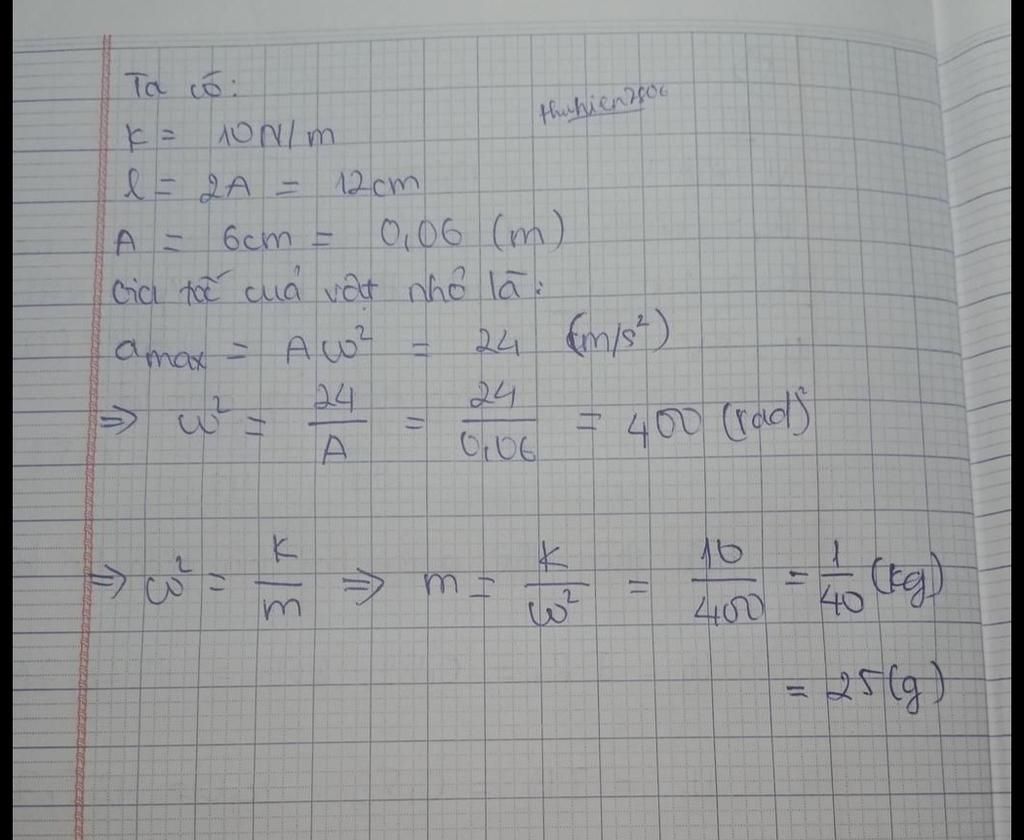 Ta có:
thuhien7506
K = 10N/m
l = 2A = 12cm
A = 6cm = 0,06 (m)
Gia tốc cuả vật nhỏ là:
amax = Aω² = 24 (m/s²)
⇒ ω² = 24/A = 24/0,06 = 400 (rad)
⇒ ω² = K/m ⇒ m = K/ω² = 10/400 = 1/40 (kg)
= 25(g)